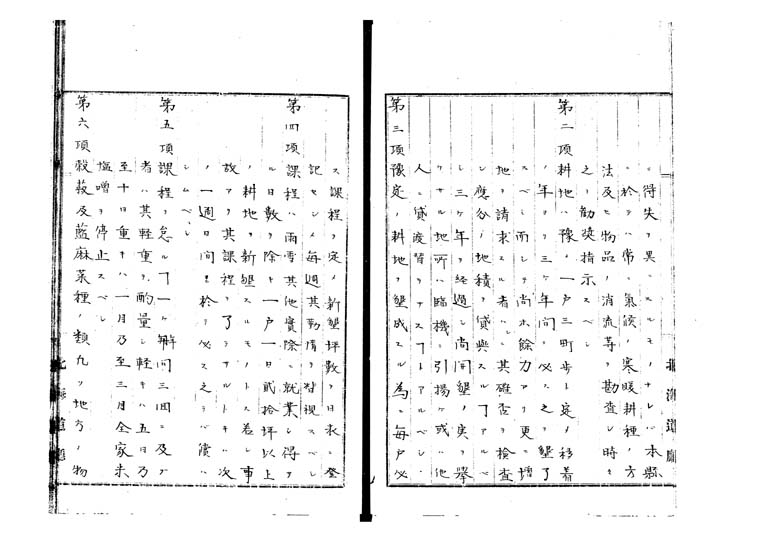 ニ得失ヲ異ニスルモノナレバ本縣
ニ於テハ常ニ氣候ノ寒暖耕種ノ方
法及ヒ物品ノ消流等ヲ勘査シ時々
之ヲ勧奨指示スベシ
第二項耕地ハ豫メ一戸三町歩ト定メ移着
ノ年ヨリ三ケ年間ニ必ス之ヲ墾了
スベシ而シテ尚ホ餘力アリ更ニ増
地ヲ請求スル者ハ其確否ヲ検査
シ應分ノ地積ヲ貸與スルヿアルベ
シ三ケ年ヲ経過シ尚開墾ノ実ヲ擧
ケサル地所ハ臨機ニ引揚ケ或ハ他
人ニ貸渡替ヲナスヿアルベシ
第三項豫定ノ耕地ヲ墾成スル為メ毎戸必
ス課程ヲ定メ新墾坪数ヲ日表ニ登
記セシメ毎週其勤惰ヲ督視スベシ
第四項課程ハ雨雪其他實際ニ就業シ得サ
ル日数ヲ除キ一戸一日貳拾坪以上
ノ耕地ヲ新墾スルモノトス若シ事
故アリ其課程ヲ了ラサルトキハ次
ノ一週日間ニ於テ必ス之ヲ償ハ
シムベシ
第五項課程ヲ怠ルヿ一ケ年間三回ニ及ブ
者ハ其軽重ヲ酌量シ軽キハ五日乃
至十日重キハ一月乃至三月全家米
塩噌ヲ停止スベシ
第六項穀菽及藍麻菜種ノ類凡ソ地方ノ物
北海道廳